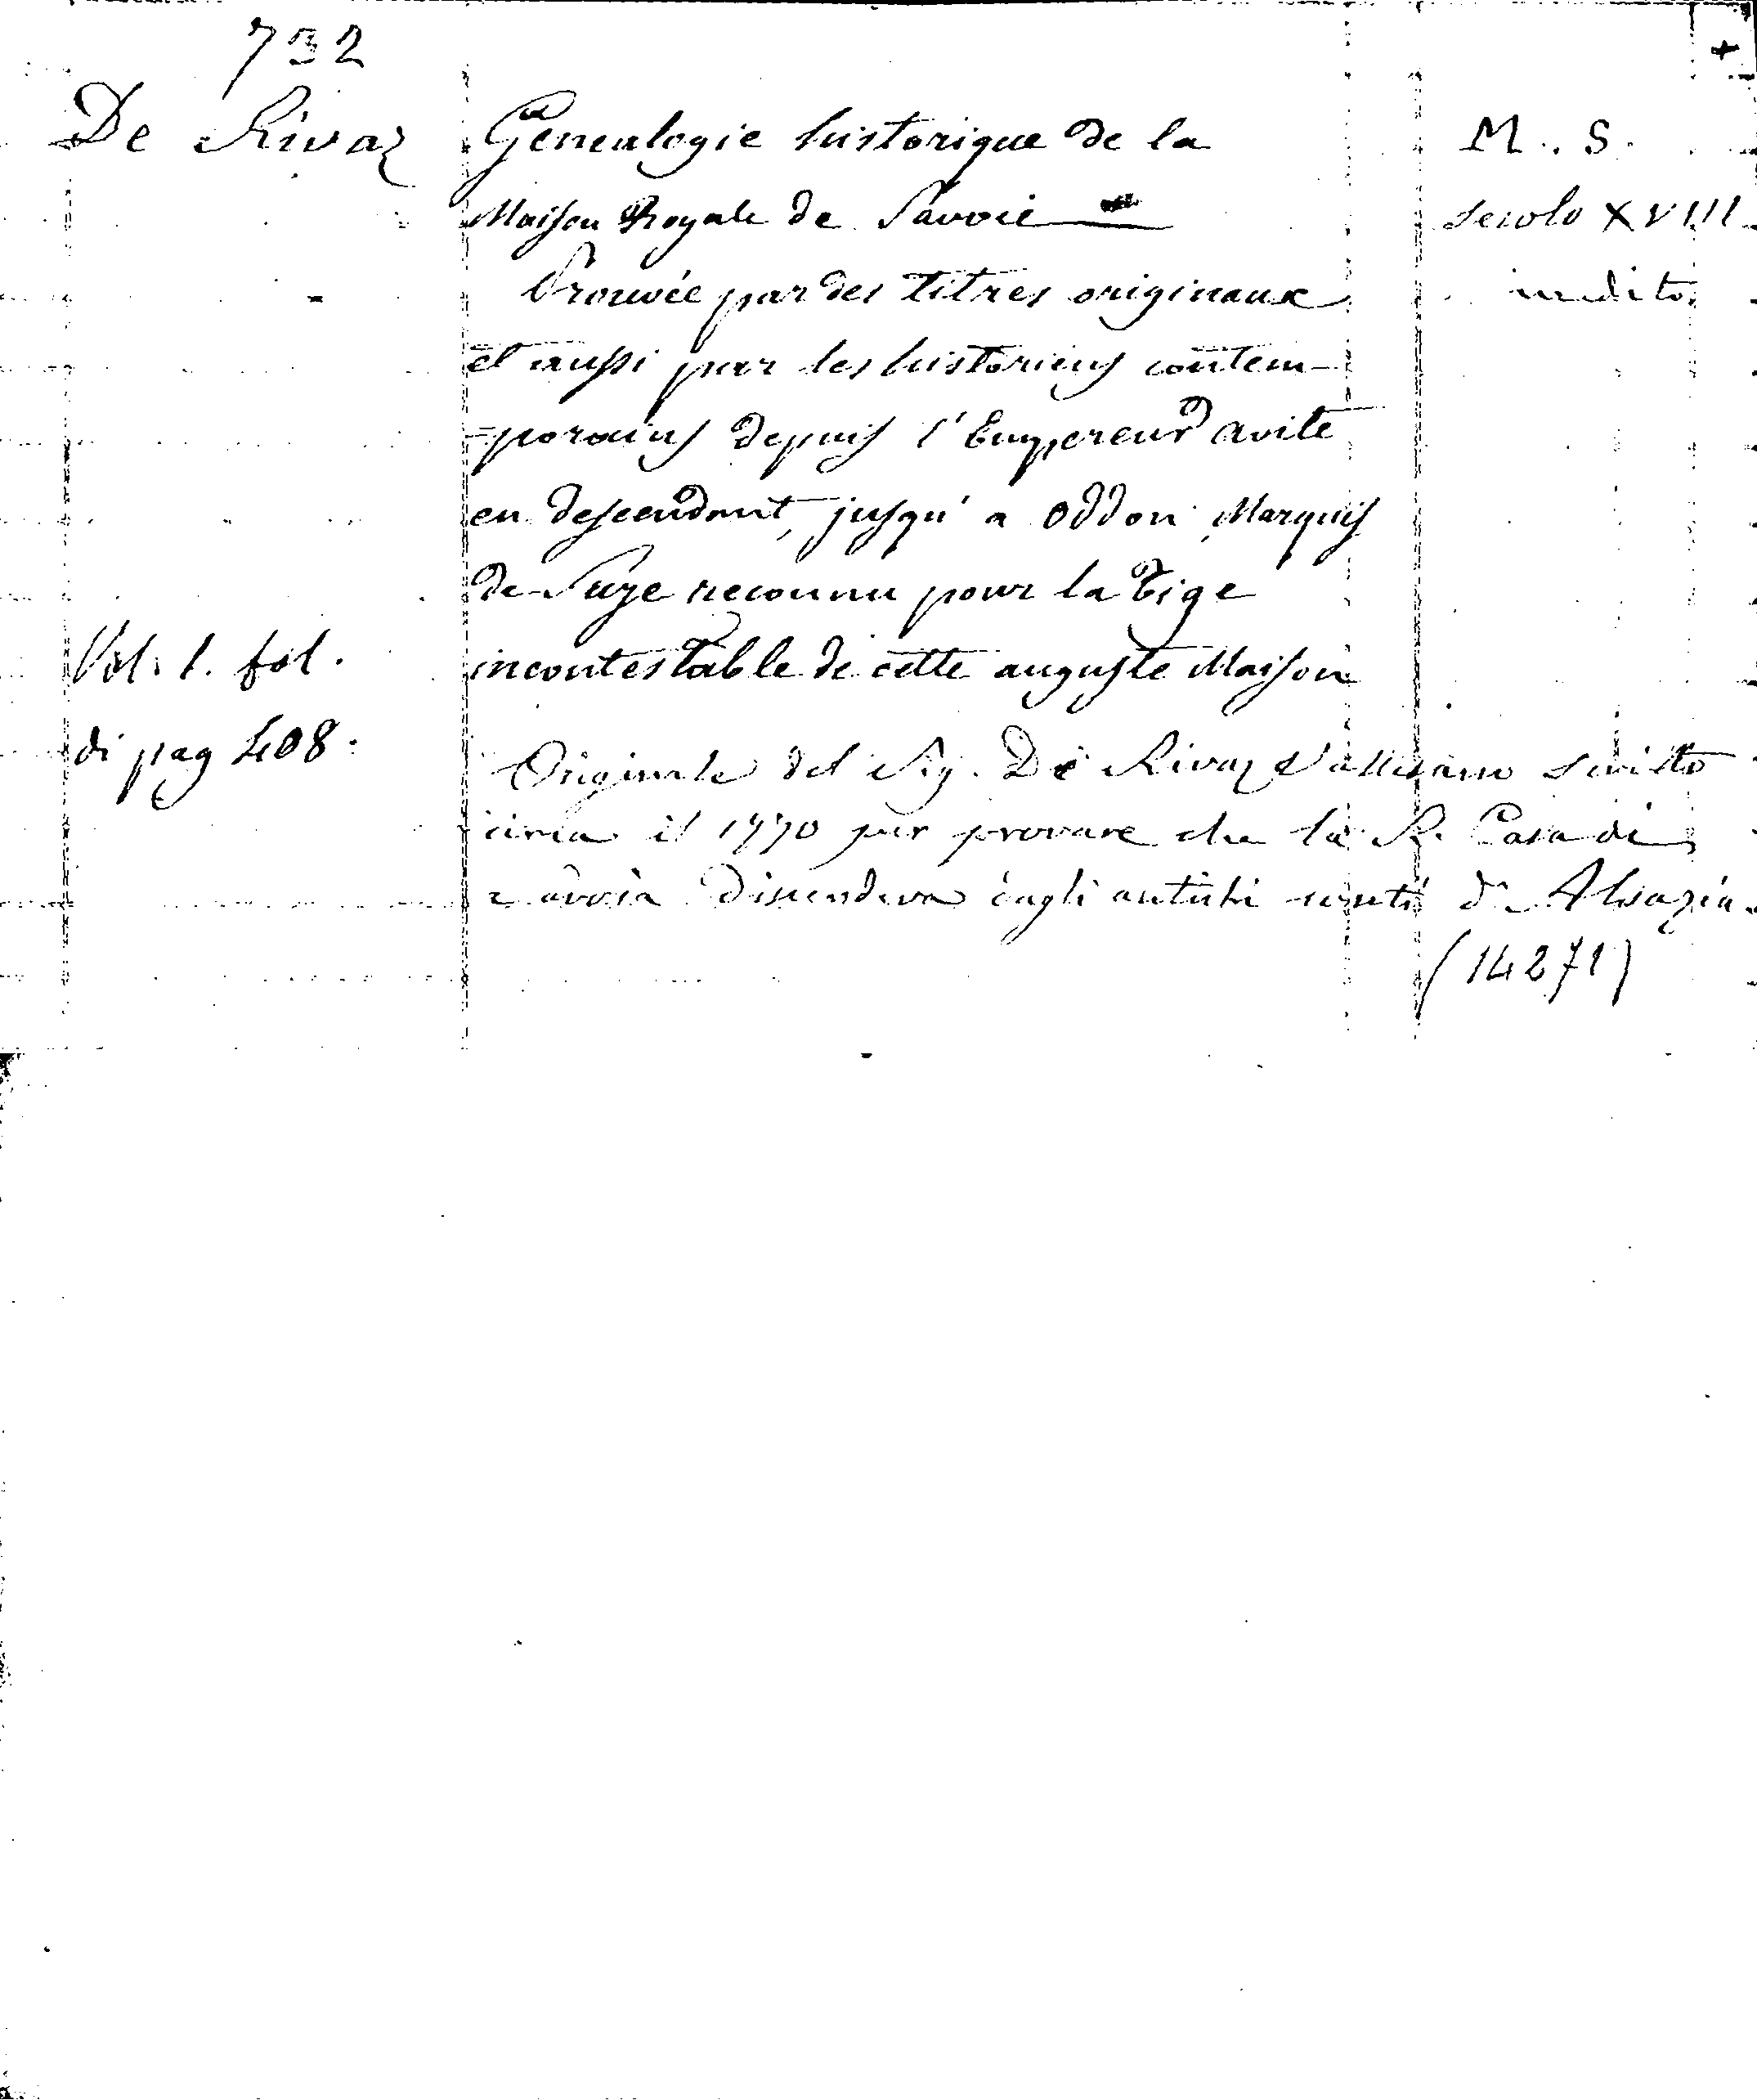 732
De Rivaz
Genealogie historique de la
Maison Royale de Savoie
Prouvée par des titres originaux
et aussi par les historiens contem-
-porains depuis l'Empereur Avite
en descendant, jusqu'a Oddon Marquis
de Suze reconnu pour la Tige
incontestable de cette auguste Maison
M. S.
secolo XVIII
inedito
Vol. 1. fol.
di pag 408.
Originale del Sig. De Rivaz Vallesano scritto
circa il 1770 per provare che la R. Casa di
Savoia discendeva dagli antichi conti d'Alsazia.
(14271)